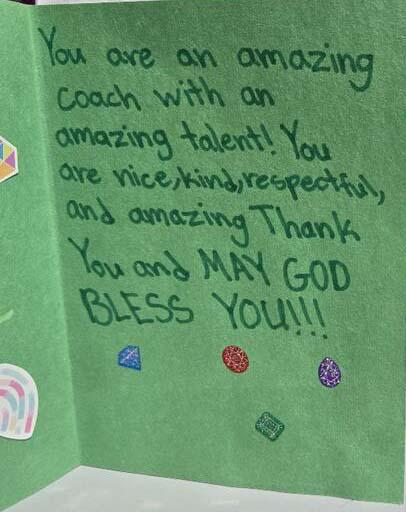 You are an amazing
coach with an
amazing talent! You
are nice,kind,respectful,
and amazing Thank
You and MAY GOD
BLESS YOU!!!